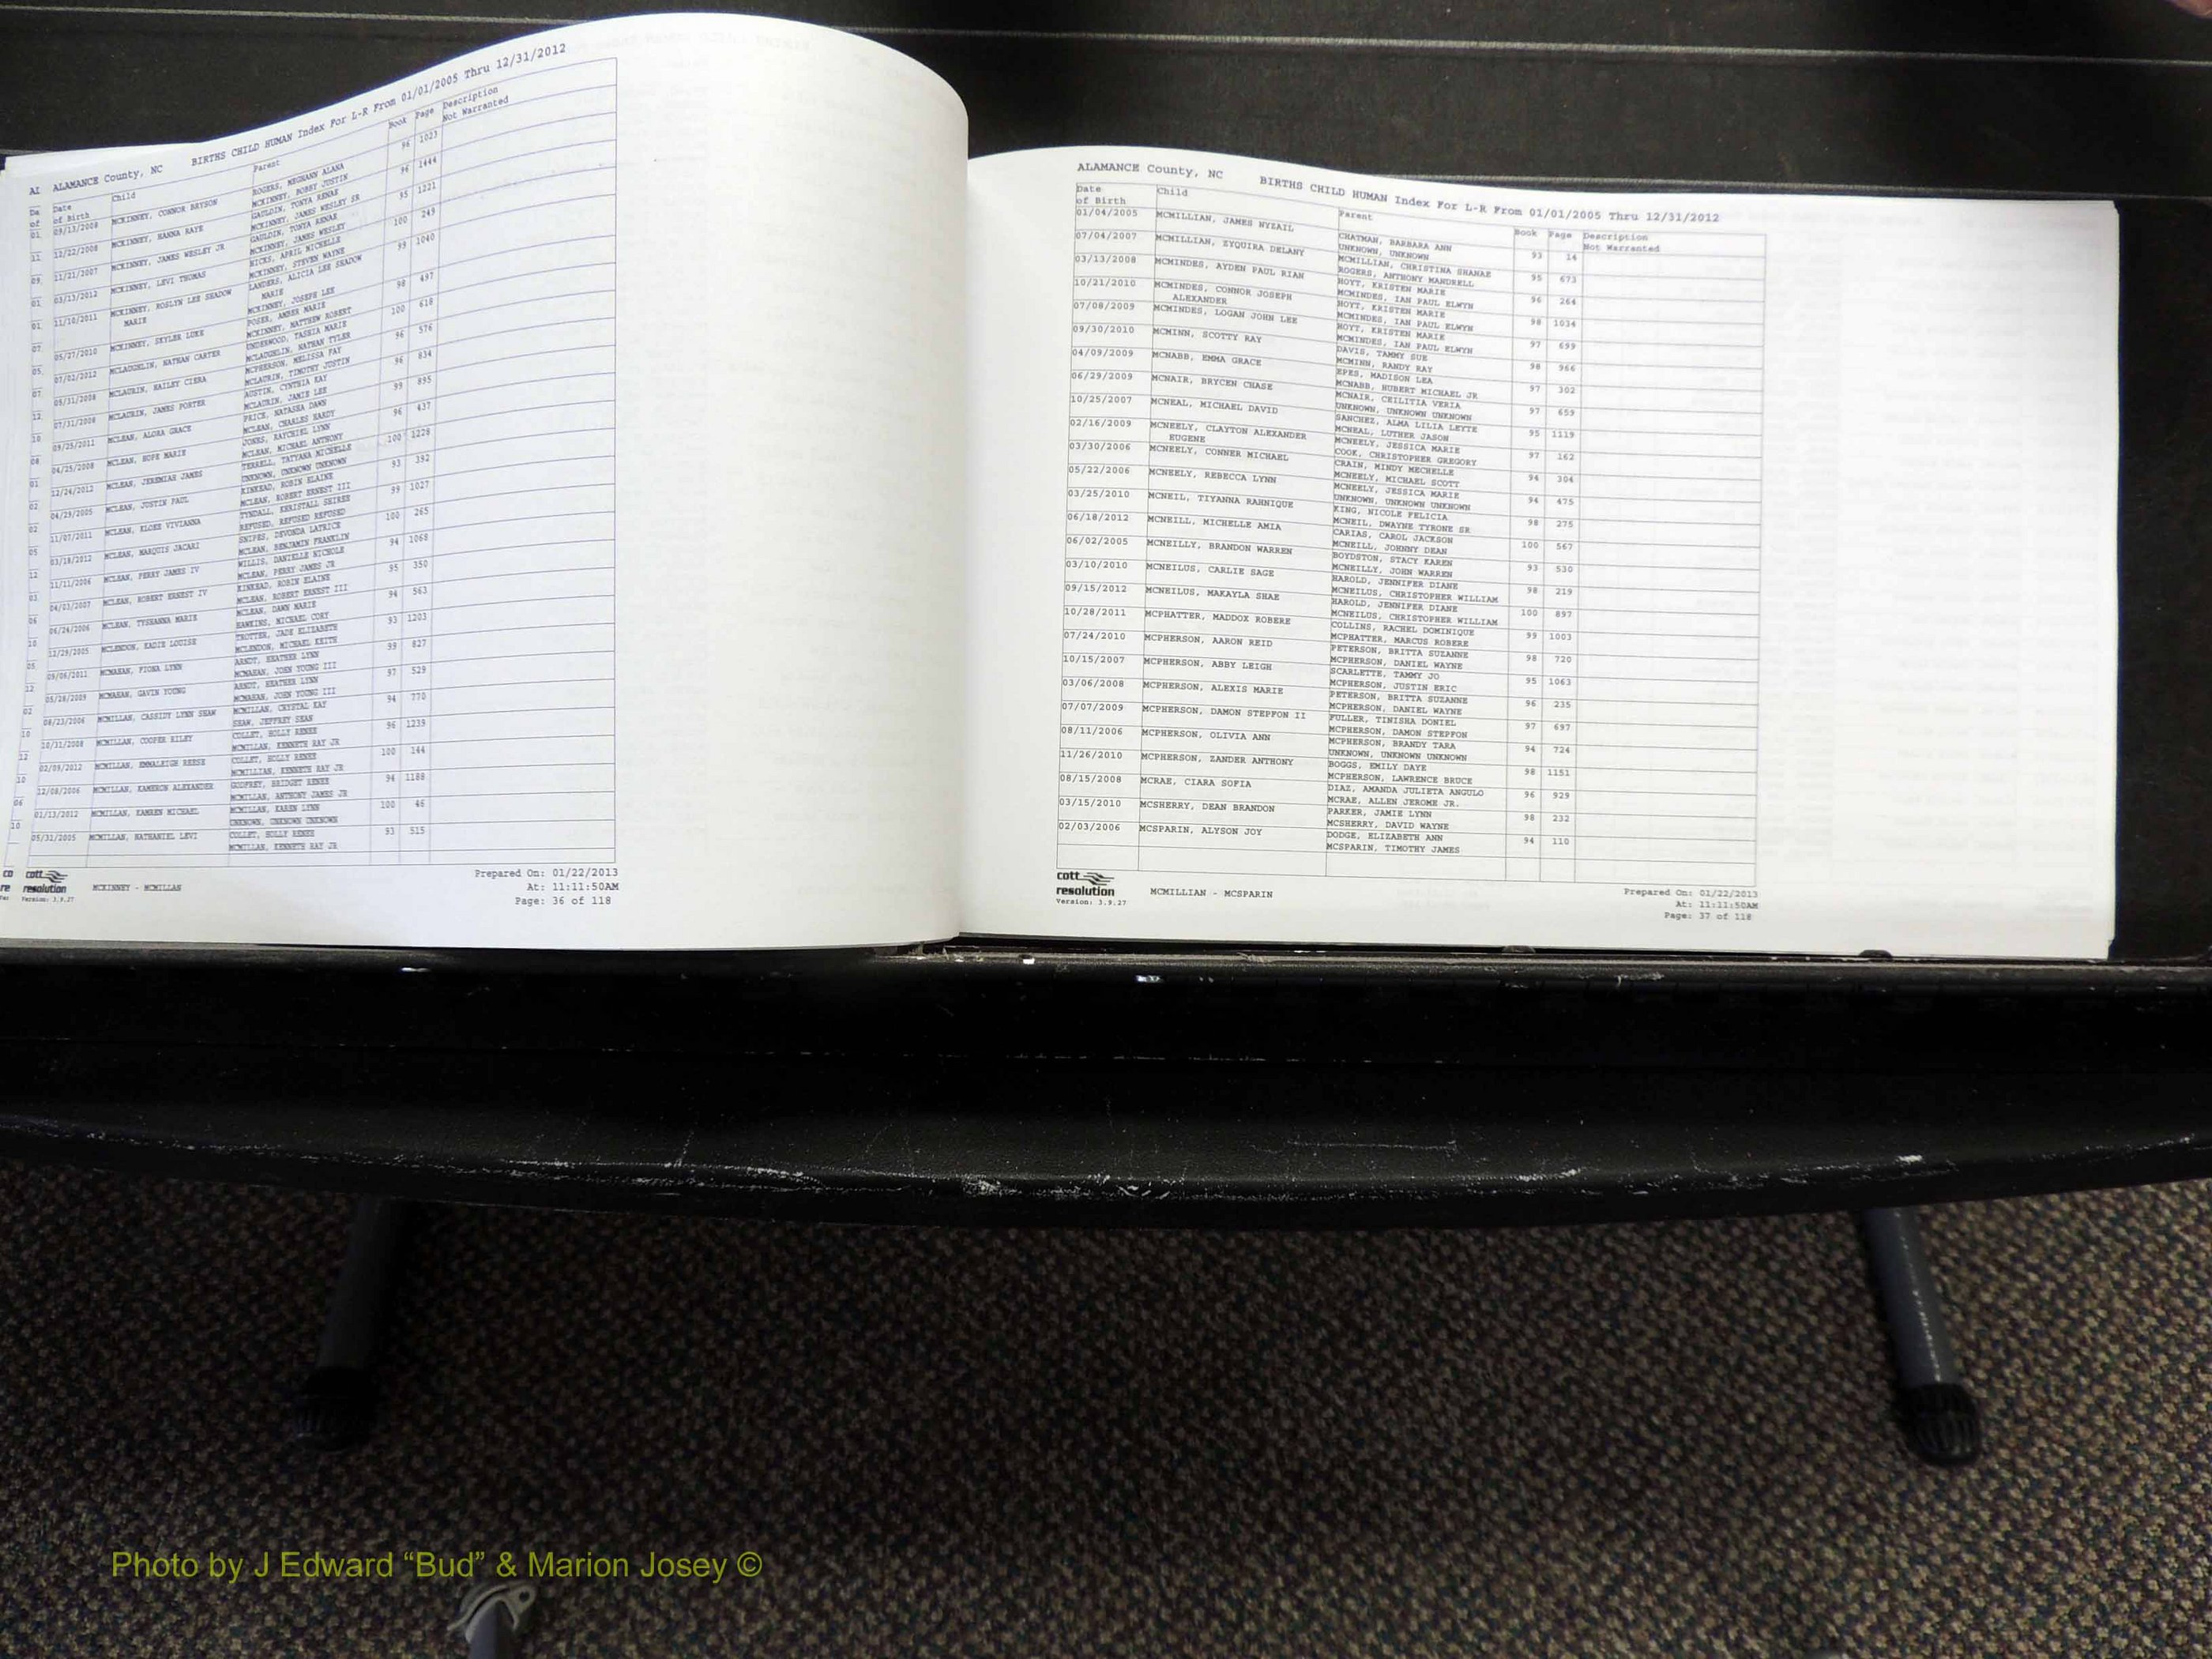 ALAMANCE County, NC BIRTHS CHILD HUMAN Index For L-R From 01/01/2005 Thru 12/31/2012
Date of Birth Child Parent Book Page Description Not Warranted
09/13/2008 MCKINNEY, CONNOR BRYSON ROGERS, MEGHANN ALANA 96 1023
MCKINNEY, BOBBY JUSTIN
12/22/2008 MCKINNEY, HANNA RAYE GAULDIN, TONYA RENAE 96 1444
MCKINNEY, JAMES WESLEY SR
11/21/2007 MCKINNEY, JAMES WESLEY JR GAULDIN, TONYA RENAE 95 1221
MCKINNEY, JAMES WESLEY
03/13/2012 MCKINNEY, LEVI THOMAS HICKS, APRIL MICHELLE 100 249
MCKINNEY, STEVEN WAYNE
11/10/2011 MCKINNEY, ROSLYN LEE SHADOW MARIE LANDERS, ALICIA LEE SHADOW MARIE 99 1040
MCKINNEY, JOSEPH LEE
05/27/2010 MCKINNEY, SKYLER LUKE POSER, AMBER MARIE 98 497
MCKINNEY, MATTHEW ROBERT
07/02/2012 MCLAUGHLIN, NATHAN CARTER UNDERWOOD, TASHIA MARIE 100 618
MCLAUGHLIN, NATHAN TYLER
05/31/2008 MCLAURIN, HAILEY CIERA MCPHERSON, MELISSA FAY 96 576
MCLAURIN, TIMOTHY JUSTIN
07/31/2008 MCLAURIN, JAMES PORTER AUSTIN, CYNTHIA KAY 96 834
MCLAURIN, JAMIE LEE
09/25/2011 MCLEAN, ALORA GRACE PRICE, NATASHA DAWN 99 895
MCLEAN, CHARLES HARDY
04/25/2008 MCLEAN, HOPE MARIE JONES, RAYCHIEL LYNN 96 437
MCLEAN, MICHAEL ANTHONY
12/24/2012 MCLEAN, JEREMIAH JAMES TERRELL, TATYANA MICHELLE 100 1228
UNKNOWN, UNKNOWN UNKNOWN
04/29/2005 MCLEAN, JUSTIN PAUL KINKEAD, ROBIN ELAINE 93 392
MCLEAN, ROBERT ERNEST III
11/07/2011 MCLEAN, KLOEE VIVIANNA TYNDALL, KRRISTALL SHIREE 99 1027
REFUSED, REFUSED REFUSED
03/18/2012 MCLEAN, MARQUIS JACARI SNIPES, DEVONDA LATRICE 100 265
MCLEAN, BENJAMIN FRANKLIN
11/11/2006 MCLEAN, PERRY JAMES IV WILLIS, DANIELLE NICHOLE 94 1068
MCLEAN, PERRY JAMES JR
04/03/2007 MCLEAN, ROBERT ERNEST IV KINKEAD, ROBIN ELAINE 95 350
MCLEAN, ROBERT ERNEST III
06/24/2006 MCLEAN, TYSHANNA MARIE MCLEAN, DAWN MARIE 94 563
HAWKINS, MICHAEL CORY
12/29/2005 MCLENDON, KADIE LOUISE TROTTER, JADE ELIZABETH 93 1203
MCLENDON, MICHAEL KEITH
09/06/2011 MCMAHAN, FIONA LYNN ARNDT, HEATHER LYNN 99 827
MCMAHAN, JOHN YOUNG III
05/28/2009 MCMAHAN, GAVIN YOUNG ARNDT, HEATHER LYNN 97 529
MCMAHAN, JOHN YOUNG III
08/23/2006 MCMILLAN, CASSIDY LYNN SHAW MCMILLAN, CRYSTAL KAY 94 770
SHAW, JEFFREY SEAN
10/31/2008 MCMILLAN, COOPER RILEY COLLET, HOLLY RENEE 96 1239
MCMILLAN, KENNETH RAY JR
02/09/2012 MCMILLAN, EMMALEIGH REESE COLLET, HOLLY RENEE 100 144
MCMILLIAN, KENNETH RAY JR
12/08/2006 MCMILLAN, KAMERON ALEXANDER GODFREY, BRIDGET RENEE 94 1188
MCMILLAN, ANTHONY JAMES JR
01/13/2012 MCMILLAN, KAMREN MICHAEL MCMILLAN, KAREN LYNN 100 46
UNKNOWN, UNKNOWN UNKNOWN
05/31/2005 MCMILLAN, NATHANIEL LEVI COLLET, HOLLY RENEE 93 515
MCMILLAN, KENNETH RAY JR
cott resolution
Version: 3.9.27
MCKINNEY - MCMILLAN
Prepared On: 01/22/2013
At: 11:11:50AM
Page: 36 of 118
ALAMANCE County, NC BIRTHS CHILD HUMAN Index For L-R From 01/01/2005 Thru 12/31/2012
Date of Birth Child Parent Book Page Description Not Warranted
01/04/2005 MCMILLIAN, JAMES NYZAIL CHATMAN, BARBARA ANN 93 14
UNKNOWN, UNKNOWN
07/04/2007 MCMILLIAN, ZYQUIRA DELANY MCMILLIAN, CHRISTINA SHANAE 95 673
ROGERS, ANTHONY MANDRELL
03/13/2008 MCMINDES, AYDEN PAUL RIAN HOYT, KRISTEN MARIE 96 264
MCMINDES, IAN PAUL ELWYN
10/21/2010 MCMINDES, CONNOR JOSEPH ALEXANDER HOYT, KRISTEN MARIE 98 1034
MCMINDES, IAN PAUL ELWYN
07/08/2009 MCMINDES, LOGAN JOHN LEE HOYT, KRISTEN MARIE 97 699
MCMINDES, IAN PAUL ELWYN
09/30/2010 MCMINN, SCOTTY RAY DAVIS, TAMMY SUE 98 966
MCMINN, RANDY RAY
04/09/2009 MCNABB, EMMA GRACE EPES, MADISON LEA 97 302
MCNABB, HUBERT MICHAEL JR
06/29/2009 MCNAIR, BRYCEN CHASE MCNAIR, CEILITIA VERIA 97 659
UNKNOWN, UNKNOWN UNKNOWN
10/25/2007 MCNEAL, MICHAEL DAVID SANCHEZ, ALMA LILIA LEYTE 95 1119
MCNEAL, LUTHER JASON
02/16/2009 MCNEELY, CLAYTON ALEXANDER EUGENE MCNEELY, JESSICA MARIE 97 162
COOK, CHRISTOPHER GREGORY
03/30/2006 MCNEELY, CONNER MICHAEL CRAIN, MINDY MECHELLE 94 304
MCNEELY, MICHAEL SCOTT
05/22/2006 MCNEELY, REBECCA LYNN MCNEELY, JESSICA MARIE 94 475
UNKNOWN, UNKNOWN UNKNOWN
03/25/2010 MCNEIL, TIYANNA RAHNIQUE KING, NICOLE FELICIA 98 275
MCNEIL, DWAYNE TYRONE SR
06/18/2012 MCNEILL, MICHELLE AMIA CARIAS, CAROL JACKSON 100 567
MCNEILL, JOHNNY DEAN
06/02/2005 MCNEILLY, BRANDON WARREN BOYDSTON, STACY KAREN 93 530
MCNEILLY, JOHN WARREN
03/10/2010 MCNEILUS, CARLIE SAGE HAROLD, JENNIFER DIANE 98 219
MCNEILUS, CHRISTOPHER WILLIAM
09/15/2012 MCNEILUS, MAKAYLA SHAE HAROLD, JENNIFER DIANE 100 897
MCNEILUS, CHRISTOPHER WILLIAM
10/28/2011 MCPHATTER, MADDOX ROBERE COLLINS, RACHEL DOMINIQUE 99 1003
MCPHATTER, MARCUS ROBERE
07/24/2010 MCPHERSON, AARON REID PETERSON, BRITTA SUZANNE 98 720
MCPHERSON, DANIEL WAYNE
10/15/2007 MCPHERSON, ABBY LEIGH SCARLETTE, TAMMY JO 95 1063
MCPHERSON, JUSTIN ERIC
03/06/2008 MCPHERSON, ALEXIS MARIE PETERSON, BRITTA SUZANNE 96 235
MCPHERSON, DANIEL WAYNE
07/07/2009 MCPHERSON, DAMON STEPFON II FULLER, TINISHA DONIEL 97 697
MCPHERSON, DAMON STEPFON
08/11/2006 MCPHERSON, OLIVIA ANN MCPHERSON, BRANDY TARA 94 724
UNKNOWN, UNKNOWN UNKNOWN
11/26/2010 MCPHERSON, ZANDER ANTHONY BOGGS, EMILY DAYE 98 1151
MCPHERSON, LAWRENCE BRUCE
08/15/2008 MCRAE, CIARA SOFIA DIAZ, AMANDA JULIETA ANGULO 96 929
MCRAE, ALLEN JEROME JR.
03/15/2010 MCSHERRY, DEAN BRANDON PARKER, JAMIE LYNN 98 232
MCSHERRY, DAVID WAYNE
02/03/2006 MCSPARIN, ALYSON JOY DODGE, ELIZABETH ANN 94 110
MCSPARIN, TIMOTHY JAMES
cott resolution
Version: 3.9.27
MCMILLIAN - MCSPARIN
Prepared On: 01/22/2013
At: 11:11:50AM
Page: 37 of 118
Photo by J Edward “Bud” & Marion Josey ©